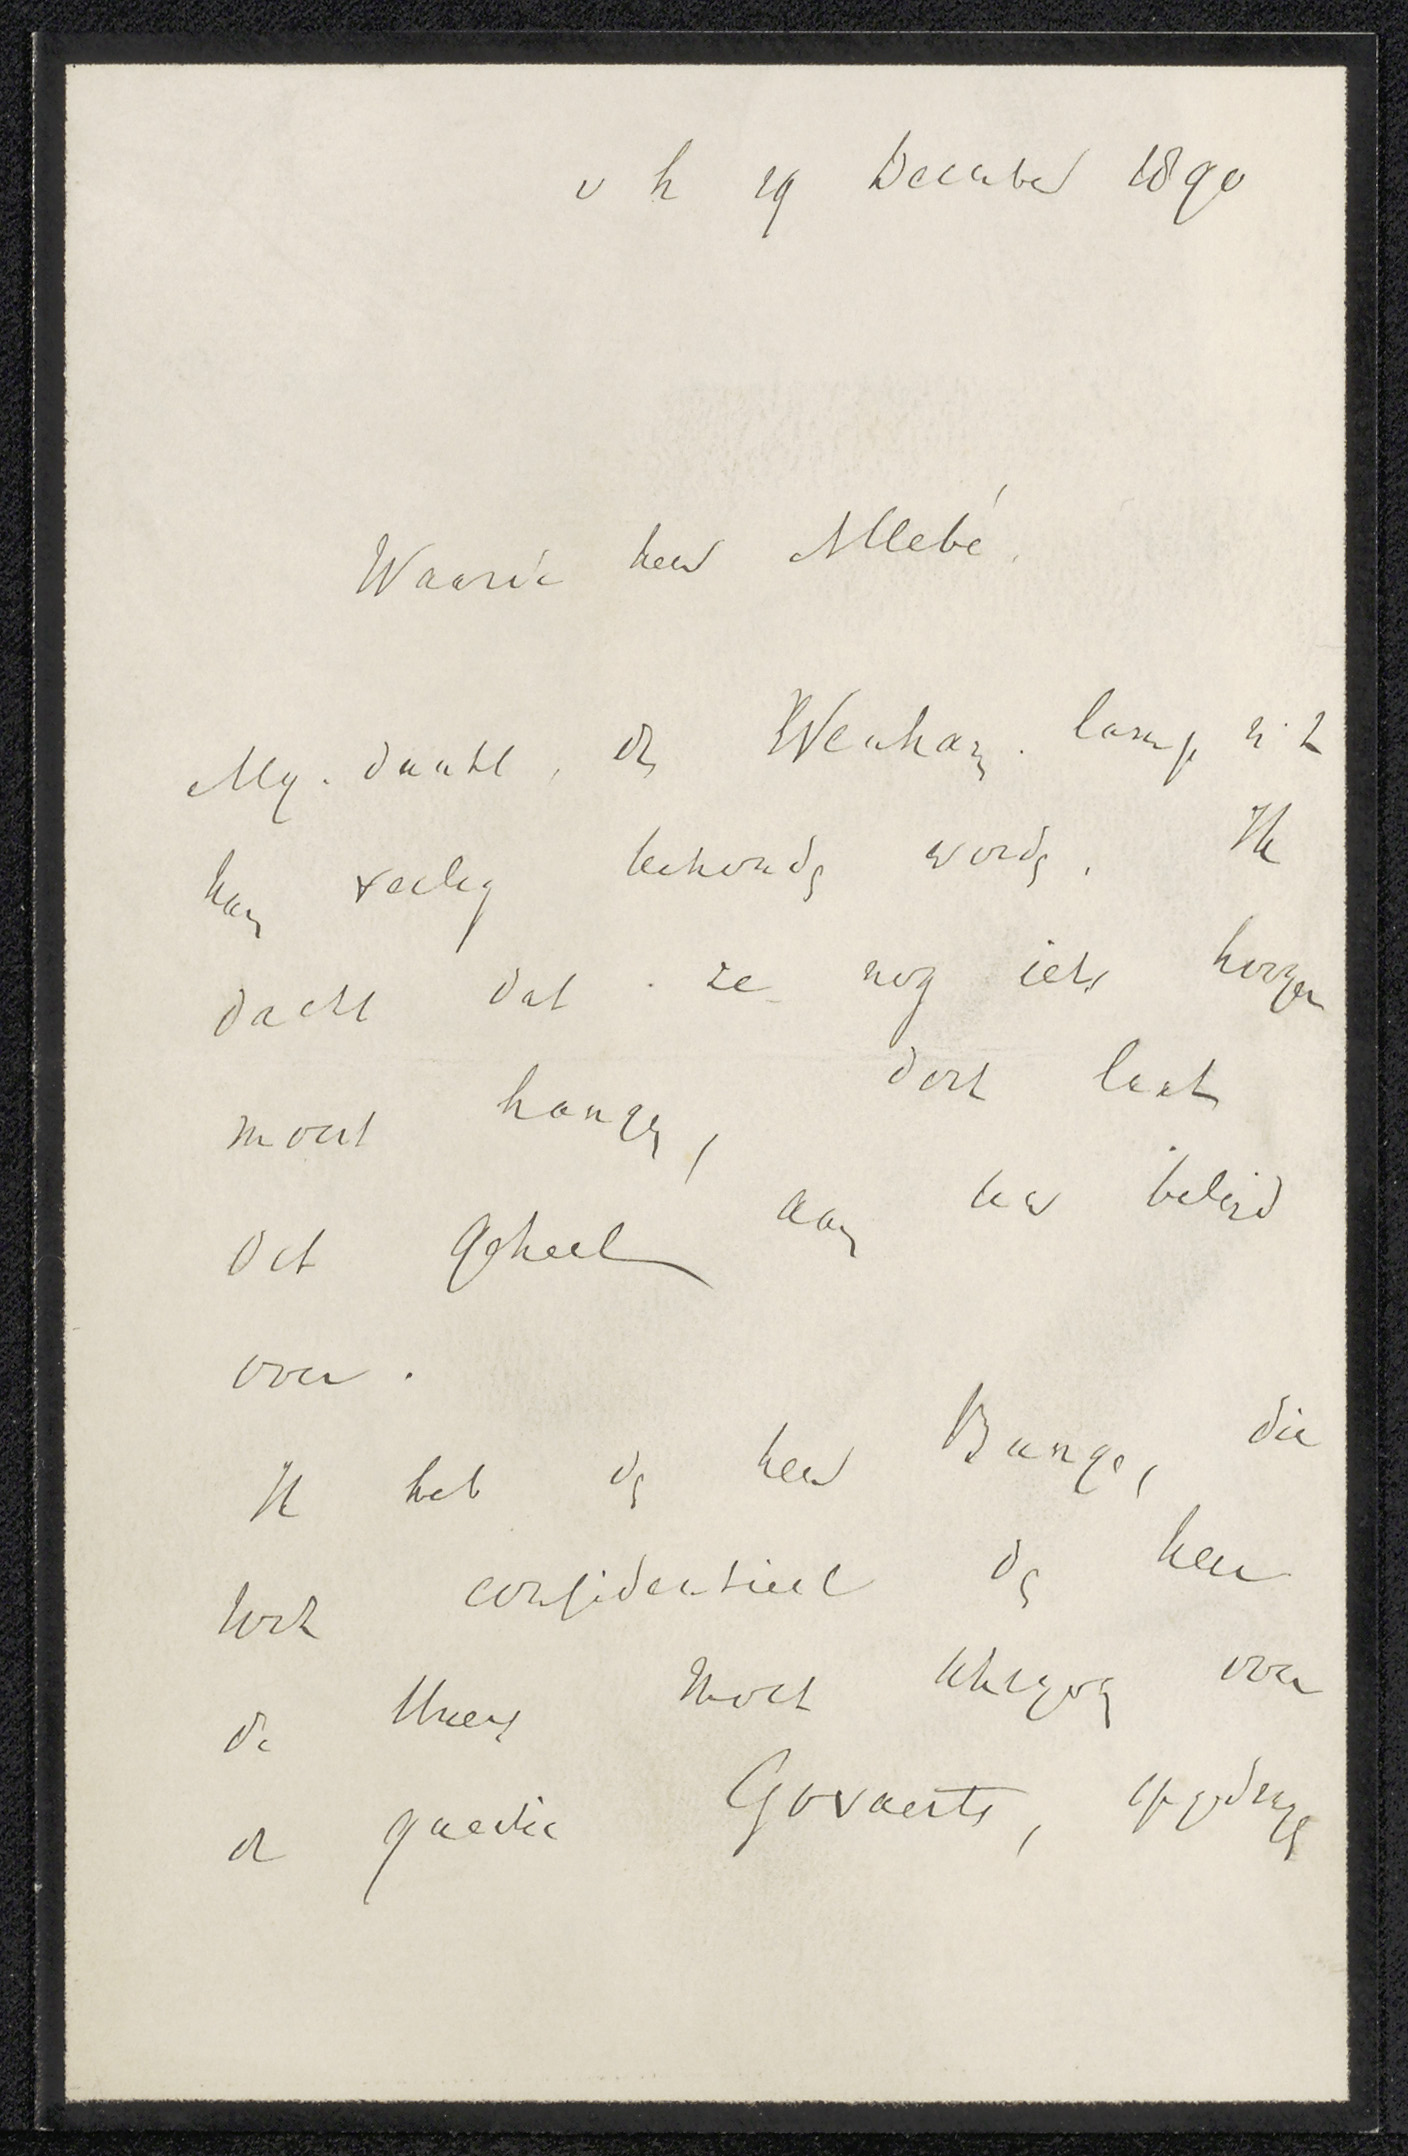 v h 29 December 1890
Waarde heer Allebé.
My. dunkt, de Wenham. lamp
kan veilig behouden worden. Ik
dacht dat ze nog iets hooger
moest hangen, doch laat
dit geheel aan uw beleid
over.
Ik heb den heer Bunge, die
toch confidentieel den heer
de moet over
de quaestie Govaerts, opgedragen